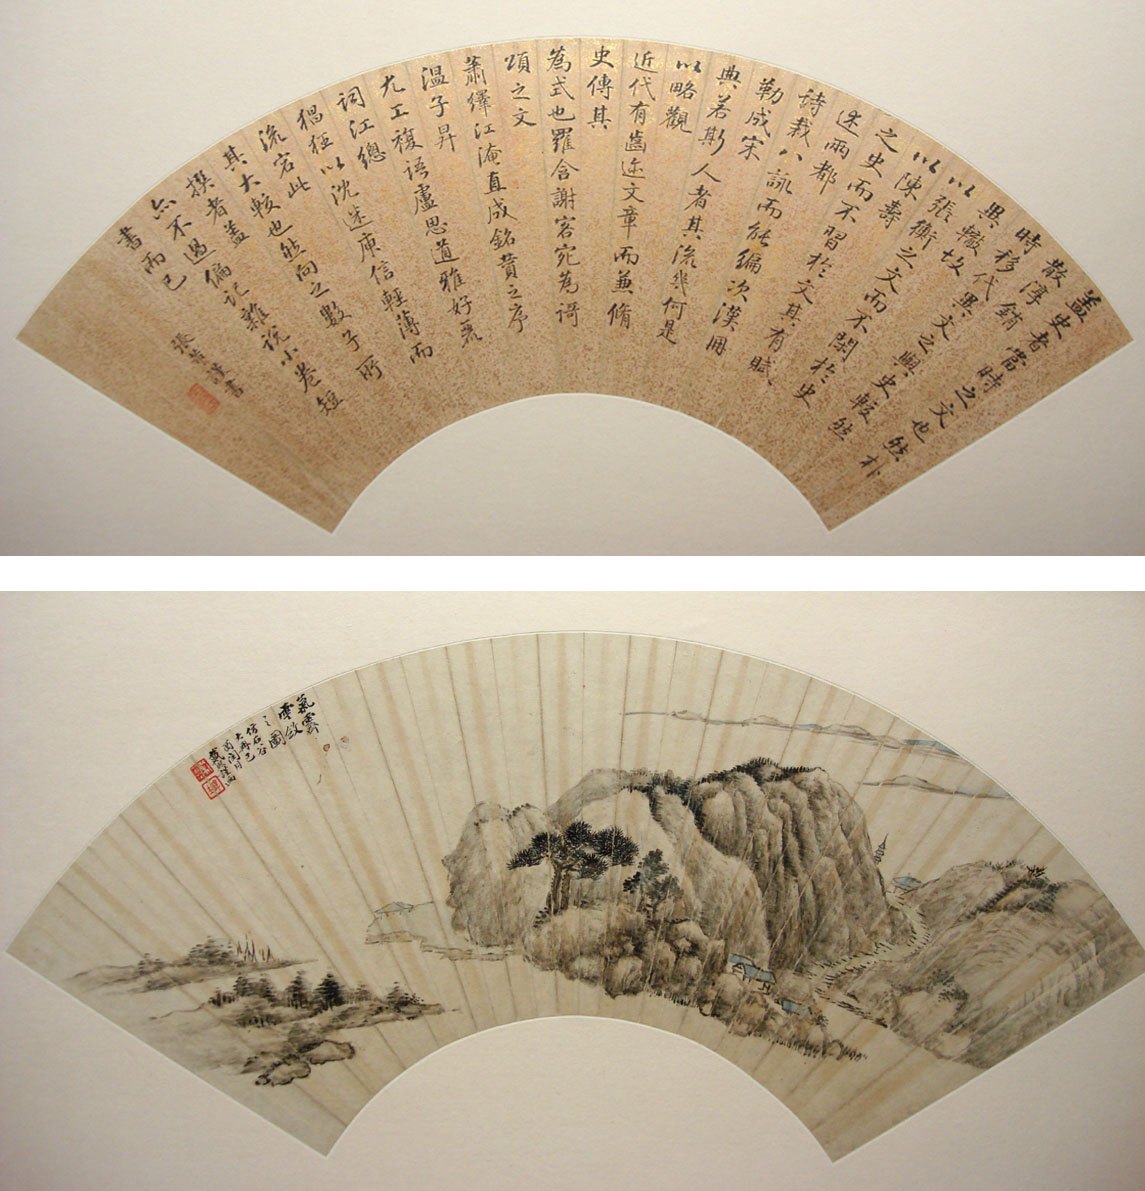 蓋史者當時之文也然朴
散淳銷
時移代異文之與史較然
異轍故
以張衡之文而不閑於史
以陳壽
之史而不習於文其有賦
述兩都
詩裁八詠而能編次漢冊
勒成宋
典若斯人者其流幾何是
以略觀
近代有齒迹文章而兼脩
史傳其
為式也羅含謝客宛為謌
頌之文
蕭繹江淹直成銘贊之序
溫子昇
尤工複語盧思道雅好麗
詞江總
猖狂以沈迷庾信輕薄而
流宕此
其大較也然向之數子所
撰者蓋
亦不過偏記雜說小卷短
書而已
張謹書
氣霽
雲斂
圖
仿石谷